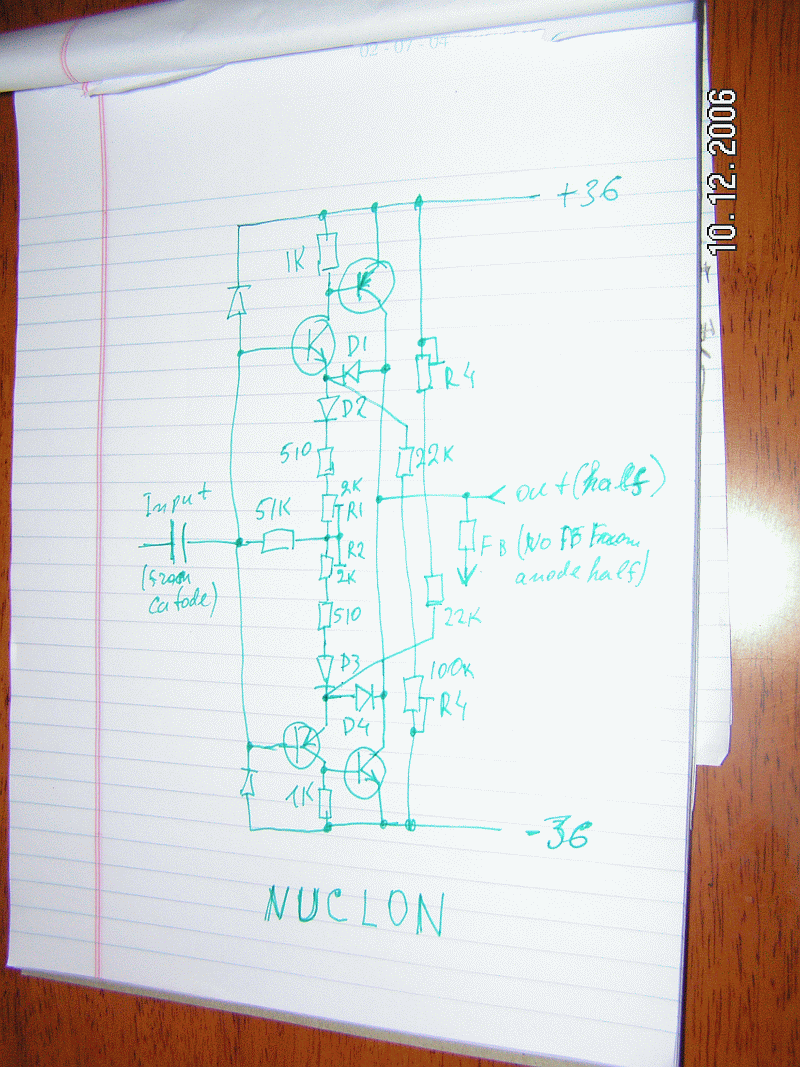 02-07-04
10.12.2006
+36
1K
D1
R4
D2
510
22K
2K
R1
out (half)
Input
51K
R2
2K
FB (No FB from
anode half)
(from
catode)
510
22K
D3
100K
R4
D4
1K
-36
NUCLON